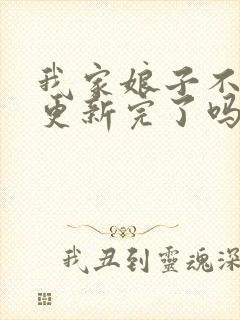 我家娘子不
更新完了吗
我丑到靈魂深